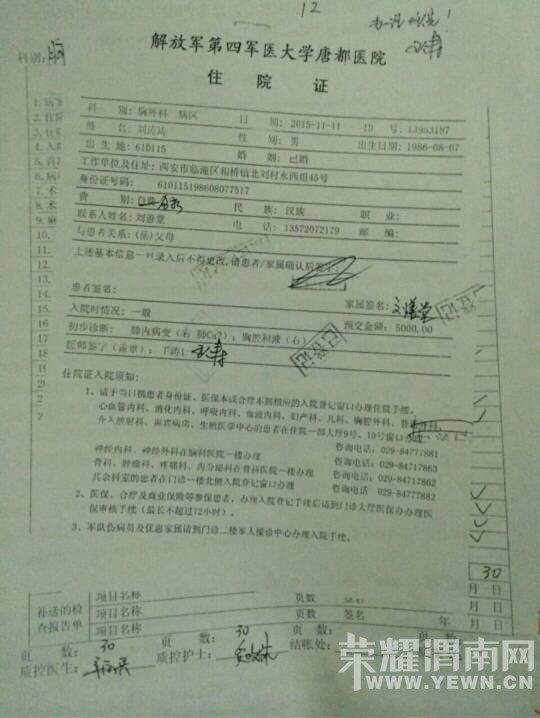 12
解放军第四军医大学唐都医院
科别:
住 院 证
科 别: 胸外科 病区 日 期: 2015-11-11 ID 号: 13953187
姓 名: 刘涛涛 性 别: 男 出生日期: 1986-08-07
出 生 地: 610115 婚 姻: 已婚
工作单位及住址: 西安市临潼区相桥镇北刘村永西组45号
身份证号码: 610115198608077517
费 别: 民 族: 汉族 职 业:
联系人姓名: 刘善堂 电 话: 13572072179 邮 编:
与患者关系: (岳)父母
上述基本信息一旦录入后不得更改,请患者/家属确认后签字:
患者签名: 家属签名:
入院时情况: 一般 预交金额: 5000.00
初步诊断: 肺内病变(右 肺Ca?); 胸腔积液(右)
医师签字(盖章):
住院证入院须知:
1、请于当日携患者身份证、医保本或合疗本到相应的入院登记窗口办理住院手续。
心血管内科、消化内科、呼吸内科、血液内科、妇产科、儿科、胸腔外科、普通外科、
介入放射科、麻醉病房、生殖医学中心的患者在住院一部大厅9号、10号窗口
咨询电话: 029-84777881
神经内科、神经外科在脑科医院一楼办理 咨询电话: 029-84717882
骨科、肿瘤科、疼痛科、内分泌科在骨科医院一楼办理 咨询电话: 029-84718863
其余科室的患者在门诊一楼北侧入院登记窗口办理 咨询电话: 029-84777882
2、医保、合疗及商业保险等参保患者,办理入院登记手续后请到门诊大厅医保办办理医
保审核手续(最长不超过72小时)。
3、军队伤病员及优惠家属请到门诊二楼军人接诊中心办理入院手续。
30
项目名称 页数 月 日
补送的检 项目名称 页数 签名 月 日
查报告单 项目名称 页数 签名 年 月 日
页 数: 30 页 数: 30 页 数:
质控医生: 质控护士: 结帐处:
荣耀渭南网
WWW.YEWN.CN